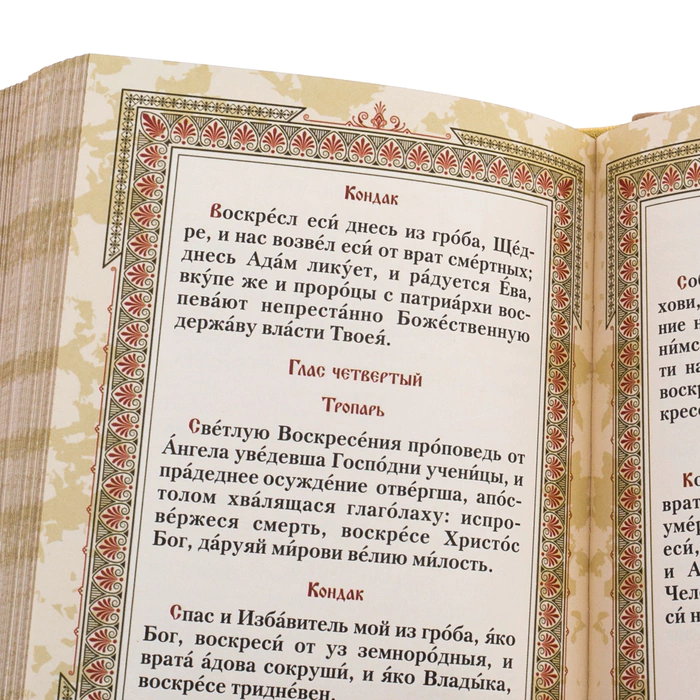 Кондак
Воскре́сл еси́ днесь из гро́ба, Ще́д-
ре, и нас возве́л еси́ от врат сме́ртных;
днесь Ада́м лику́ет, и ра́дуется Е́ва,
вку́пе же и проро́цы с патриа́рхи вос-
пева́ют непреста́нно Боже́ственную
держа́ву вла́сти Твоея́.
Глас четвертый
Тропарь
Све́тлую Воскресе́ния про́поведь от
А́нгела уве́девша Госпо́дни учени́цы, и
пра́деднее осужде́ние отве́ргша, апо́с-
толом хва́лящася глаго́лаху: испро-
ве́ржеся смерть, воскре́се Христо́с
Бог, да́руяй ми́рови ве́лию ми́лость.
Кондак
Спас и Изба́витель мой из гро́ба, я́ко
Бог, воскреси́ от уз земноро́дныя, и
врата́ а́дова сокруши́, и я́ко Влады́ка,
воскре́се тридне́вен.
Соб
хови,
ние н
ни́мс
ти на
воскр
кресе
Ко
врат
уме́р
еси́,
и А
Чел
си́ н